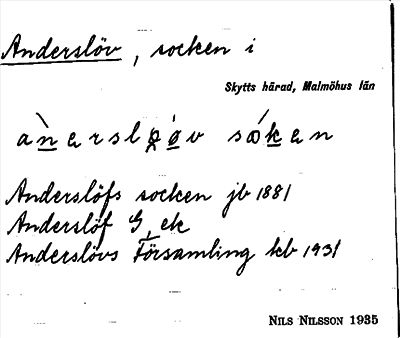 Anderslöv, socken i
Skytts härad, Malmöhus län
anersløv soken
Anderslöfs socken jb 1881
Anderslöf G, ek
Anderslövs Församling kb 1931
NILS NILSSON 1935